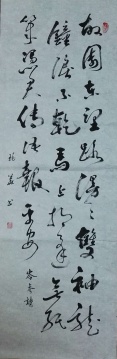 故園东望路漫々雙袖龍
鐘淚不乾馬上相逢無紙
筆憑君傳語報平安
岑參詩
書